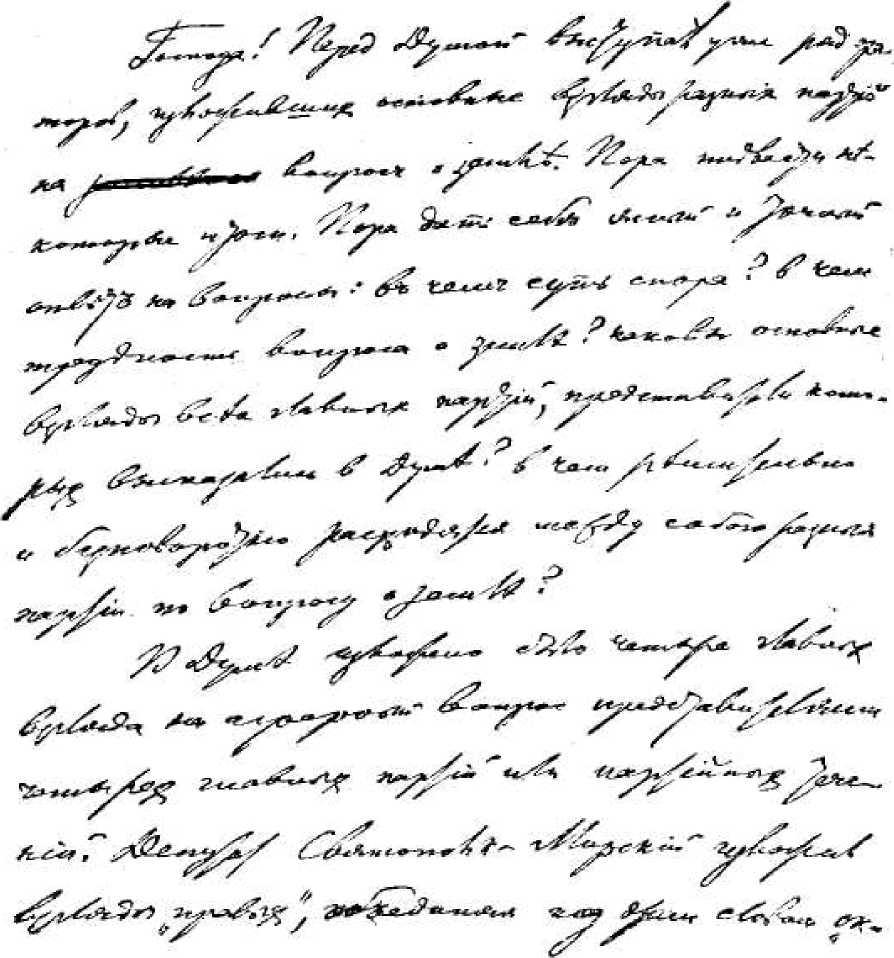 Господа! Перед Думой выступал уже ряд ора-
торов, изложивших основные взгляды разных партий
на вопрос о землѣ. Пора подвести нѣ-
которые итоги. Пора дать себѣ ясный и точный
отвѣт на вопросы: въ чем суть спора? в чем
трудность вопроса о землѣ? каковы основные
взгляды всѣх главных партій, представители кото-
рых высказались в Думѣ? в чем рѣшительно
и безповоротно расходятся между собою разныя
партіи по вопросу о землѣ?
В Думѣ изложено было четыре главных
взгляда на аграрный вопрос представителями
четырех главных партій или партійных тече-
ній. Депутат Святополк-Мирский изложил
взгляды „правых“, объединяя под этим словом „ок-